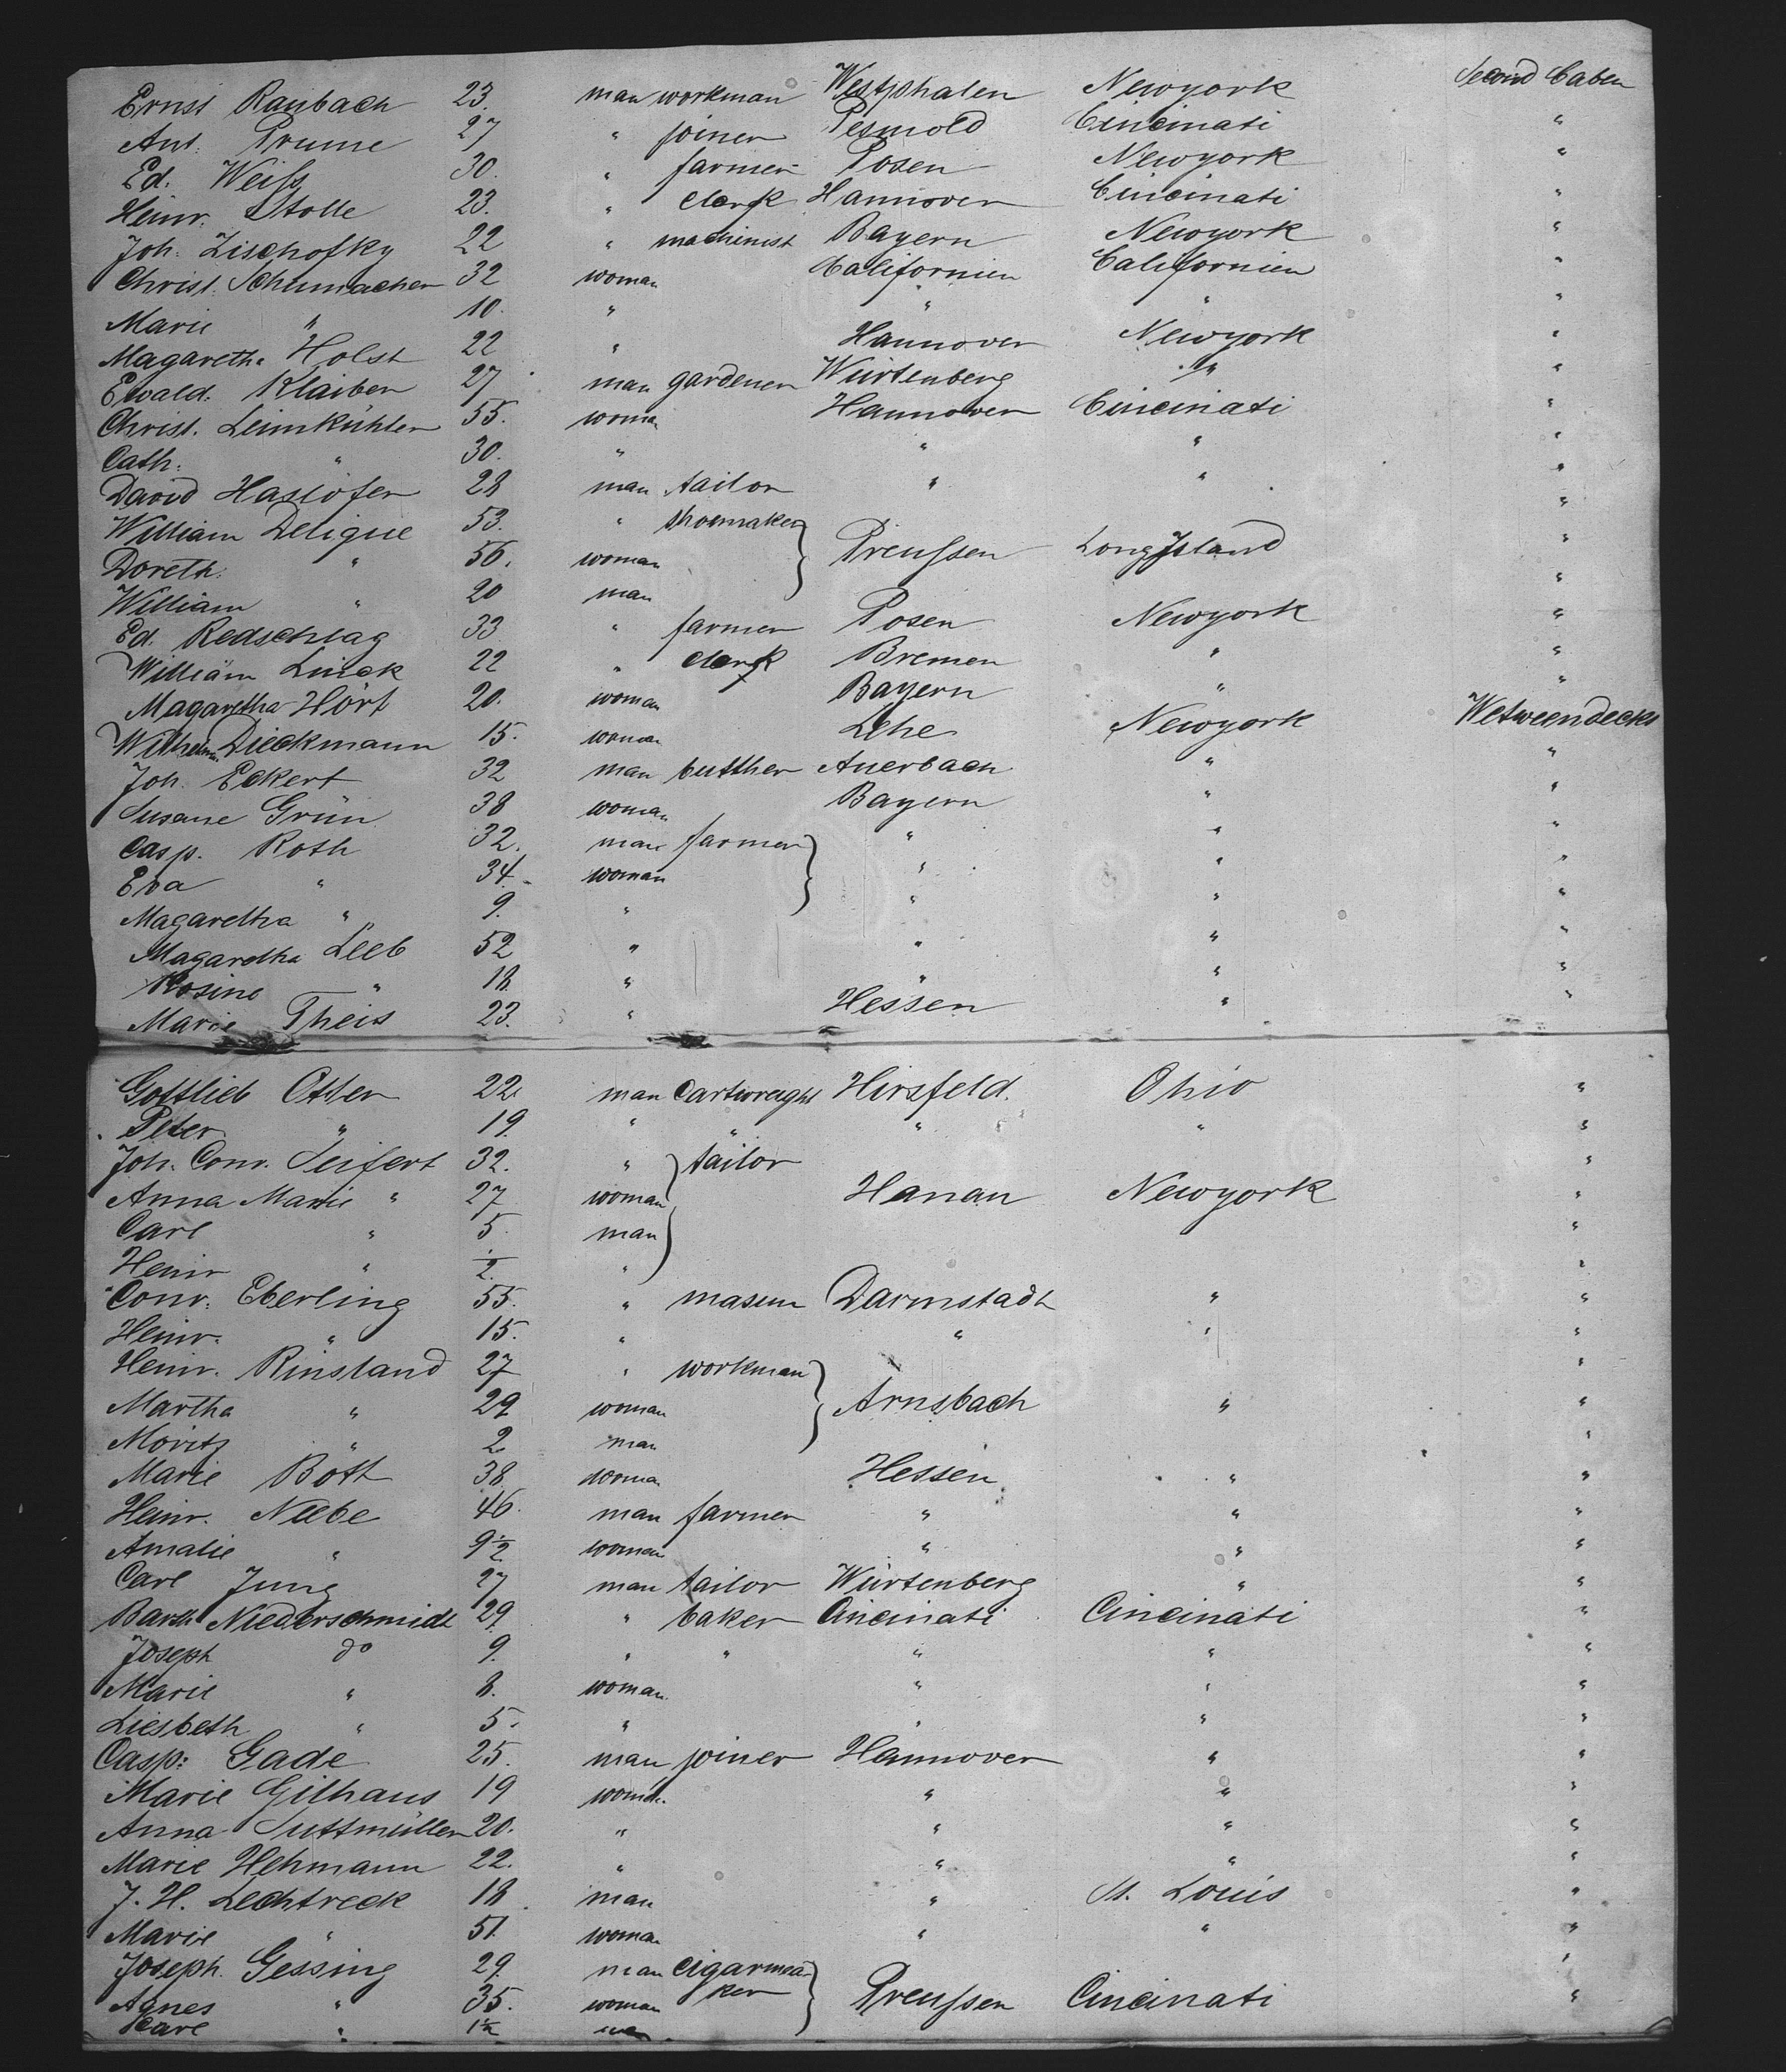 Ernst Raubach 23. man workman Westphalen Newyork Second Caben
Ant. Prume 27 " joiner Cincinati "
Ed. Weiss 30. " farmer Posen Newyork "
Heinr. Stolle 23. " clerk Hannover Cincinati "
Joh. Zischofky 22 " machinist Bayern Newyork "
Christ. Schumacher 32 woman Californien Californien "
Marie " 10. " " " "
Magareth. Holst 22 " Hannover Newyork "
Ewald. Klaiber 27 man gardener Würtenberg " "
Christ. Leimkühler 55. woman Hannover Cincinati "
Cath. " 30. " " " "
David Haslöfer 28 man tailor " " "
William Deligue 53. " shoemaker "
Doreth. " 56. woman Preussen Long Island "
William " 20 man "
Ed. Redschlag 33 " farmer Posen Newyork "
William Linck 22 " clerk Bremen " "
Magaretha Hört 20. woman Bayern " "
Wilhelm. Dieckmann 15. woman Lehe Newyork Wetweendecks
Joh. Eckert 32 man butther Auerbach " "
Susane Grün 38 woman Bayern " "
Casp. Roth 32. man farmer " " "
Eva " 34. woman " " "
Magaretha " 9. " " " "
Magaretha Leeb 52 " " " "
Rosine " 18. " " " "
Marie Theis 23. " Hessen " "
Gottlieb Otter 22. man Cartwreight Hirsfeld. Ohio "
Peter " 19. " " " " "
Joh. Conr. Seifert 32. " tailor "
Anna Marie " 27 woman Hanau Newyork "
Carl " 5. man "
Heinr " ½. " "
Conr. Eberling 55. " masun Darmstadt " "
Heinr. " 15. " " " "
Heinr. Rinsland 27 " workman "
Martha " 29 woman Arnsbach " "
Moritz " 2 man "
Marie Bott 38. woman Hessen " "
Heinr. Neebe 46. man farmer " " "
Amalie " 9½ woman " " "
Carl Jung 27 man tailor Würtenberg " "
Barth. Niederschmidt 29. " baker Cincinati Cincinati "
Joseph do 9. " " " " "
Marie " 8. woman " " "
Liesbeth " 5. " " " "
Casp: Gade 25. man joiner Hannover " "
Marie Gilhaus 19 woman " " "
Anna Suttmüller 20. " " " "
Marie Hehmann 22. " " " "
J. H. Lechtreck 18. man " St. Louis "
Marie " 51. woman " " "
Joseph. Gessing 29. man cigarmea- "
ker
Agnes " 35. woman Preussen Cincinati "
Carl " 1½